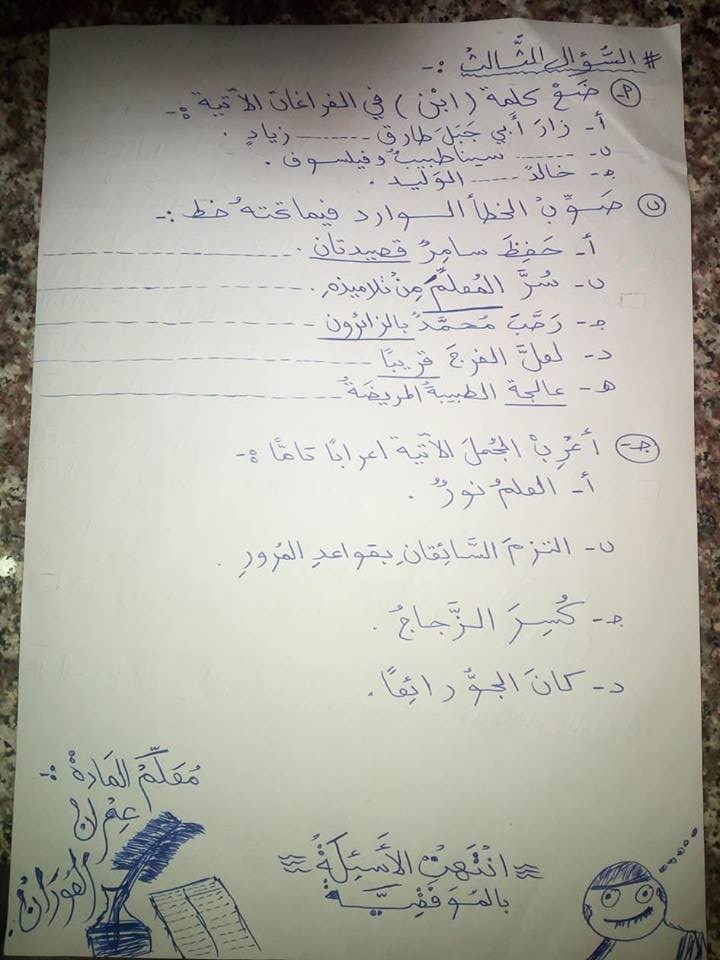 # السُّؤال الثَّالث :-
أ- ضَعْ كلمة ( ابْن ) في الفراغات الآتية :-
أ- زارَ أبي جَبَلَ طارق ------ زيادٍ .
ب- ------ سينا طبيبٌ وفيلسوف .
جـ- خالدُ ---- الوَليد .
ب صَوِّبْ الخطأ الوارد فيما تحته خط :-
أ- حَفِظَ سامِرٌ قصيدتان .
ب- سُرَّ المُعلمُ مِنْ تلاميذهِ .
جـ- رَحَّبَ مُحمَّدٌ بالزائرون
د- لعلَّ الفرجَ قريبًا
هـ- عالجة الطبيبةُ المريضةُ
جـ- أعْرِبْ الجُملَ الآتية اعرابًا تامًّا :-
أ- العلمُ نورٌ .
ب- التزمَ السَّائِقانِ بقواعدِ المرُورِ .
جـ- كُسِرَ الزَّجاجُ .
د- كانَ الجوُّ رائِعًا .
مُعَلِّمُ المَادة :-
انْتَهتْ الأَسْئِلَةُ
بالمُوَفَّقِيَّة